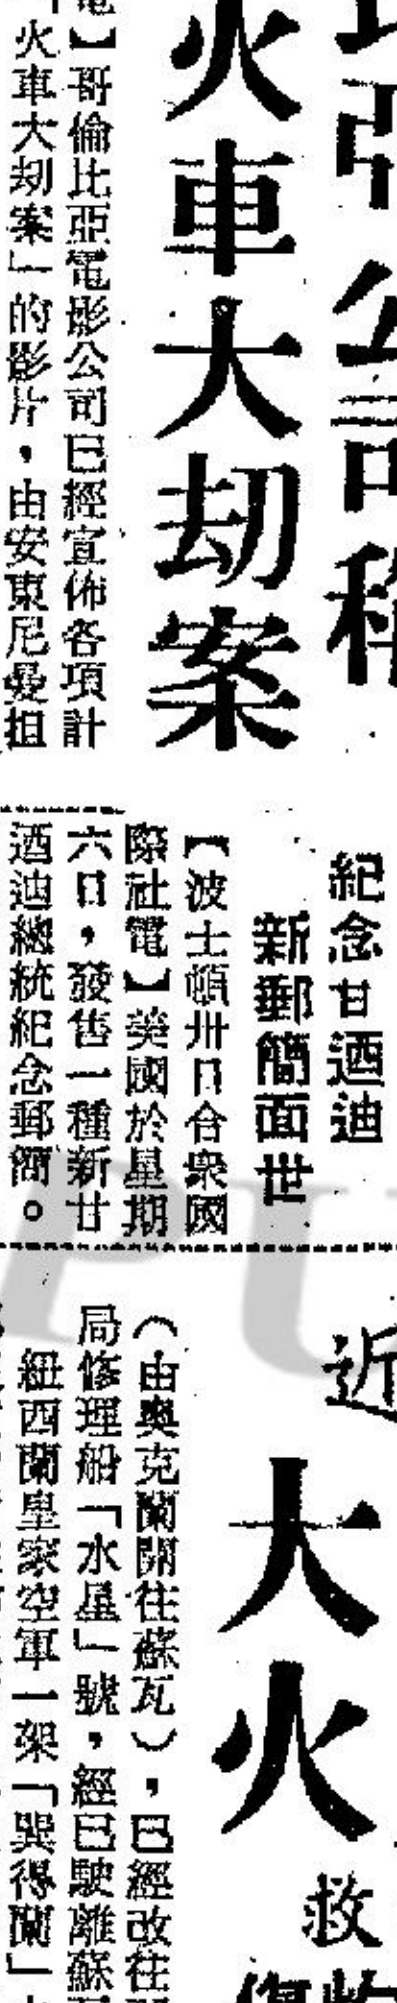 火車大刼案
電】哥倫比亞電影公司已經宣佈各項計
「火車大刼案」的影片，由安東尼曼担
紀念甘迺迪
新郵簡面世
【波士頓卅日合衆國
際社電】美國於星期
六日，發售一種新甘
迺迪總統紀念郵簡。
近
大火
救
（由奧克蘭開往蘇瓦），已經改往
局修理船「水星」號，經已駛離蘇
紐西蘭皇家空軍一架「巽得蘭」